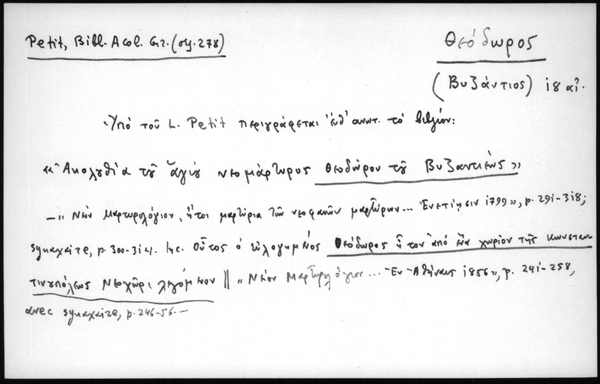 Petit, Bibl. Acol. Gr. (σγ. 278)
Θεόδωρος
(Βυζάντιος) 18 αἰ.
Ὑπὸ τοῦ L. Petit περιγράφεται ἐνθ' ἀνωτ. τὸ βιβλίον:
«Ἀκολουθία τοῦ ἁγίου νεομάρτυρος Θεοδώρου τοῦ Βυζαντιέως»
— „Νέον Μαρτυρολόγιον, ἤτοι μαρτύρια τῶν νεοφανῶν μαρτύρων... Ἐνετίῃσιν 1799", p. 291-318;
synaxaire, p. 300-314. Inc. Οὗτος ὁ εὐλογημένος Θεόδωρος ἦτον ἀπὸ ἕνα χωρίον τῆς Κωνσταν
τινουπόλεως Νεοχῶρι λεγόμενον || „Νέον Μαρτυρολόγιον... Ἐν Ἀθήναις 1856", p. 241-258,
avec synaxaire, p. 246-56. —